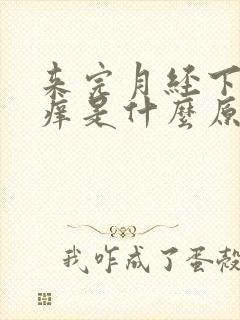 来完月经下
痒是什麽原
我咋成了蛋殼